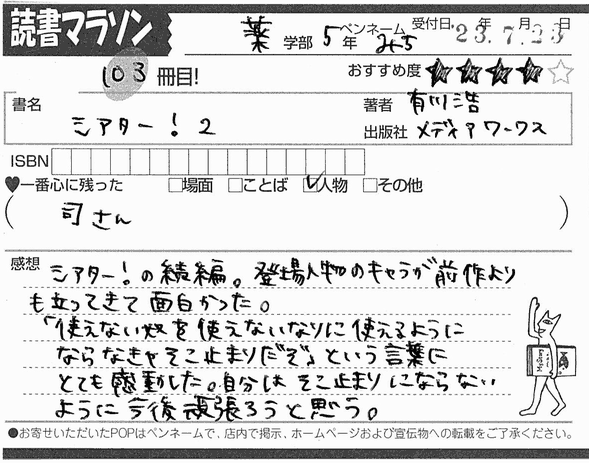 読書マラソン
薬 学部 5年 ペンネーム みらら 受付日 23年 7月 23日
103冊目!
おすすめ度 ★★★★☆
書名 シアター!2
著者 有川浩
出版社 メディアワークス
ISBN
♥一番心に残った □場面 □ことば ☑人物 □その他
(司さん)
感想 シアター!の続編。登場人物のキャラが前作より
も立ってきて面白かった。
「使えない奴を使えないなりに使えるように
ならなきゃそこ止まりだぞ」という言葉に
とても感動した。自分はそこ止まりにならない
ように今後頑張ろうと思う。
●お寄せいただいたPOPはペンネームで、店内で掲示、ホームページおよび宣伝物への転載をご了承ください。